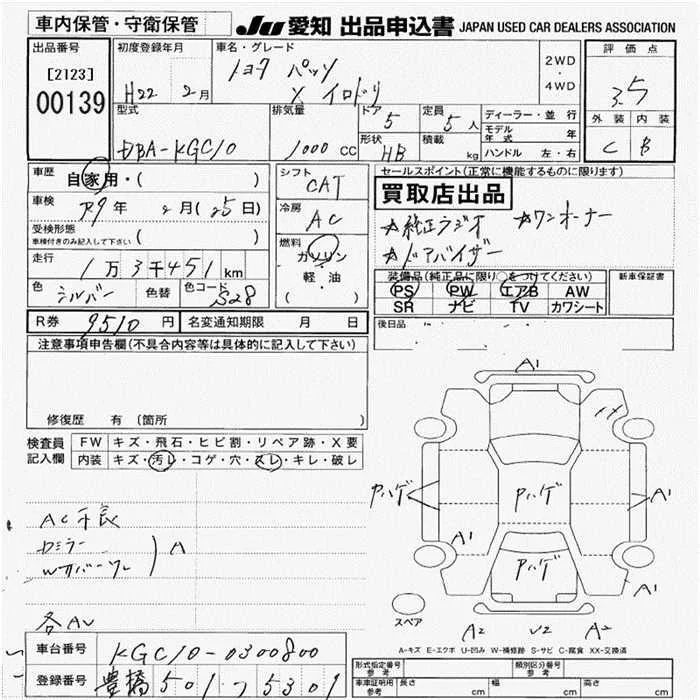 車内保管・守衛保管
JU 愛知 出品申込書 JAPAN USED CAR DEALERS ASSOCIATION
出品番号
[2123]
00139
初度登録年月
H22 2月
車名・グレード
トヨタ パッソ
X イロドリ
2WD
・
4WD
評価点
3.5
外装 内装
C B
型式
DBA-KGC10
排気量
1000 CC
ドア
5
定員
5人
形状
HB
積載
kg
ディーラー・並行
モデル年式 年
ハンドル 左・右
車歴
自家用・( )
車検
R9年 2月(25日)
受検形態
車検付きのみ記入して下さい ( )
走行
1万3千451km
色
シルバー
色替
色コード
S28
シフト
CAT
冷房
AC
燃料
ガソリン
軽・油
セールスポイント(正常に機能するものに限ります)
買取店出品
☆純正ラジオ ☆ワンオーナー
☆ドアバイザー
装備品(純正品に限り○をつけてください)
PS PW エアB AW
SR ナビ TV カワシート
新車保証書
後日品
R券 9510円
名変通知期限 月 日
注意事項申告欄(不具合内容等は具体的に記入して下さい)
修復歴 有 (箇所 )
検査員
記入欄
FW キズ・飛石・ヒビ割・リペア跡・X要
内装 キズ・汚レ・コゲ・穴・スレ・キレ・破レ
AC不良
A
各AU
A1
Pハゲ
Pハゲ
A1
A1
Pハゲ
A1
スペア
A2 U2 A2
A-キズ E-エクボ U-凹み W-補修跡 S-サビ C-腐食 XX-交換済
車台番号 KGC10-0300800
登録番号 豊橋 501 つ 5301
形式指定番号
参考
類別区分番号
参考
車車証明用
参考
長さ cm
幅 cm
高さ cm